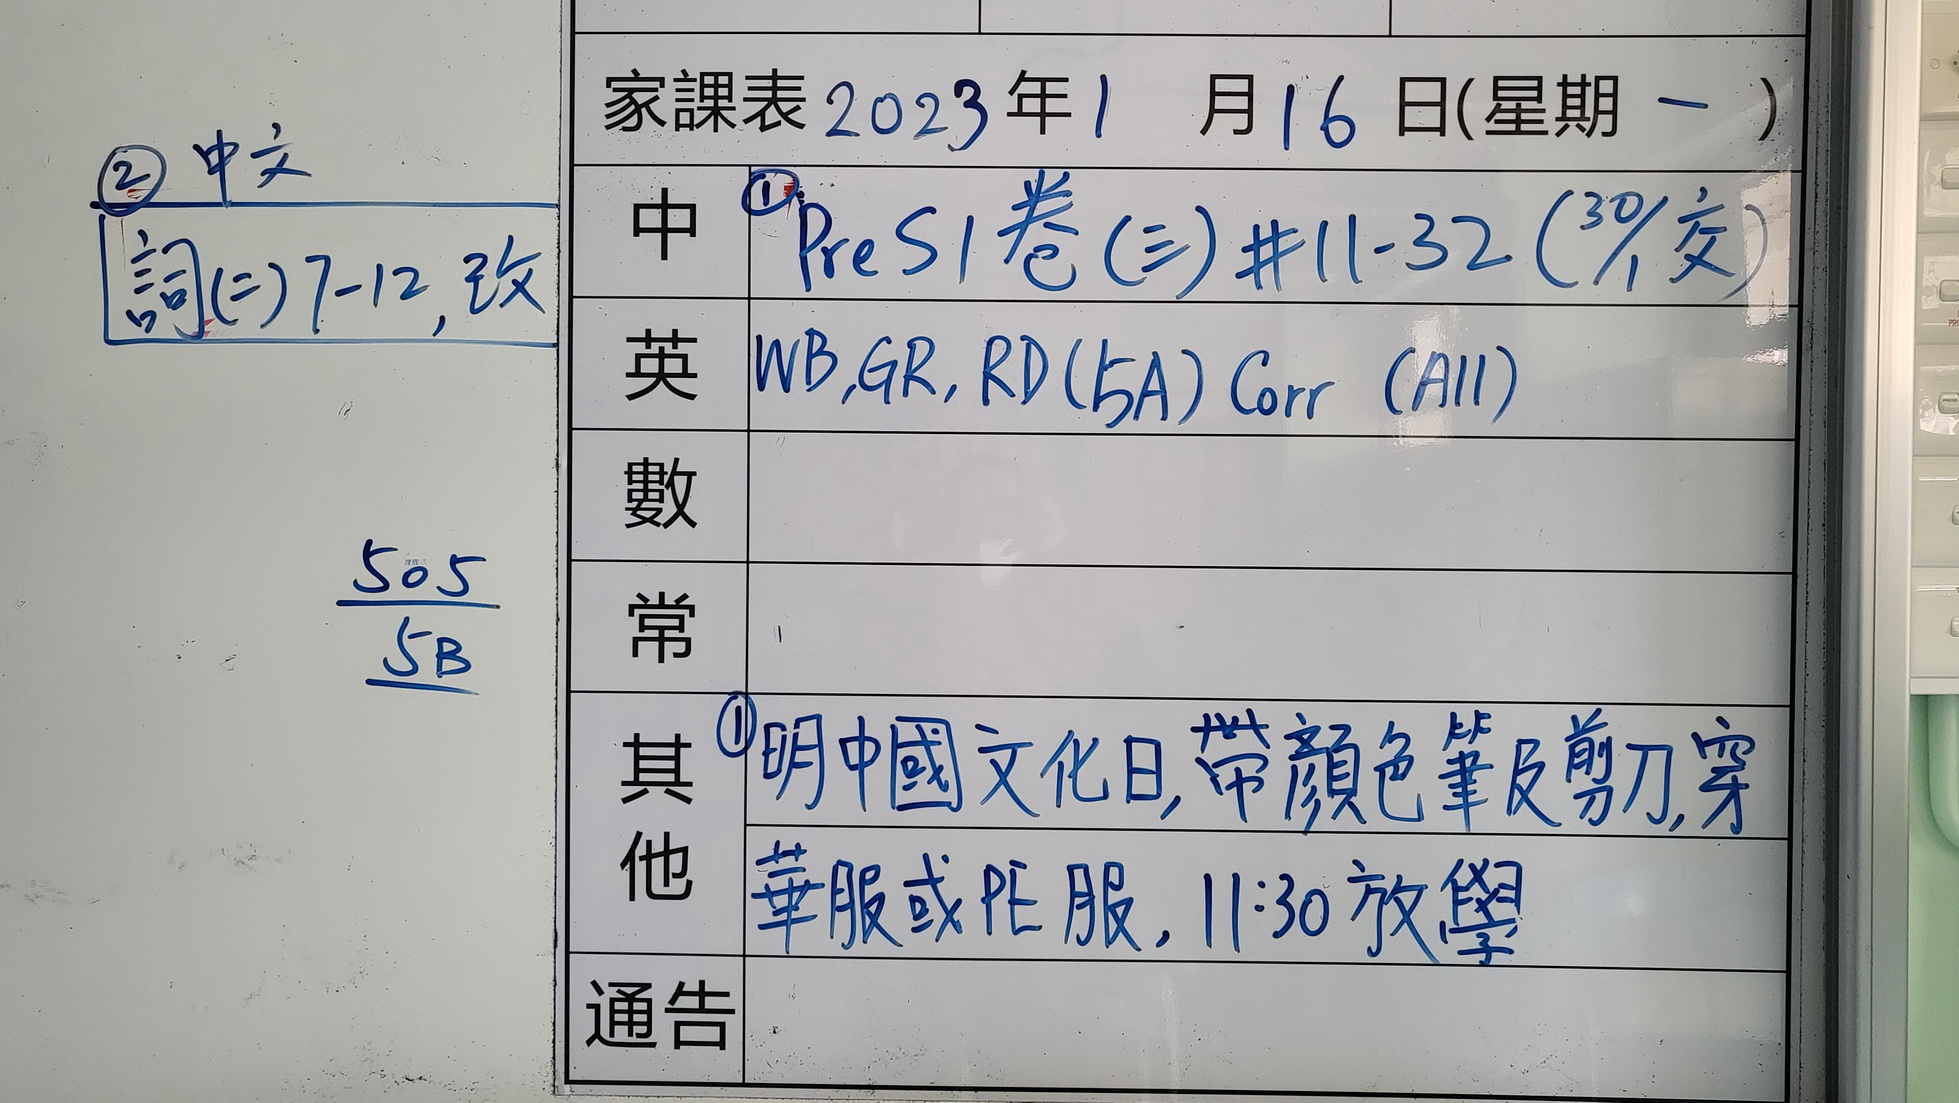 家課表 2023 年 1 月 16 日(星期 一 )
中 ① Pre S1 卷 (三) #11-32 (30/1 交)
② 中文
詞(二) 7-12, 改
英 WB, GR, RD (5A) Corr (All)
數
常
505
5B
其他 ① 明中國文化日, 帶顏色筆及剪刀, 穿
華服或PE服, 11:30 放學
通告